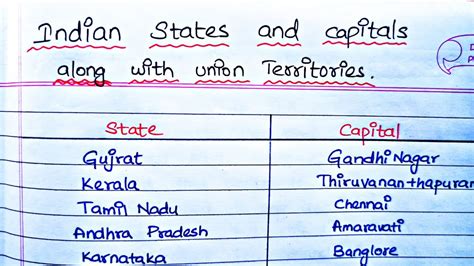 Indian States and capitals
along with union Territories.
State Capital
Gujrat Gandhi Nagar
Kerala Thiruvananthapuram
Tamil Nadu Chennai
Andhra Pradesh Amaravati
Karnataka Banglore